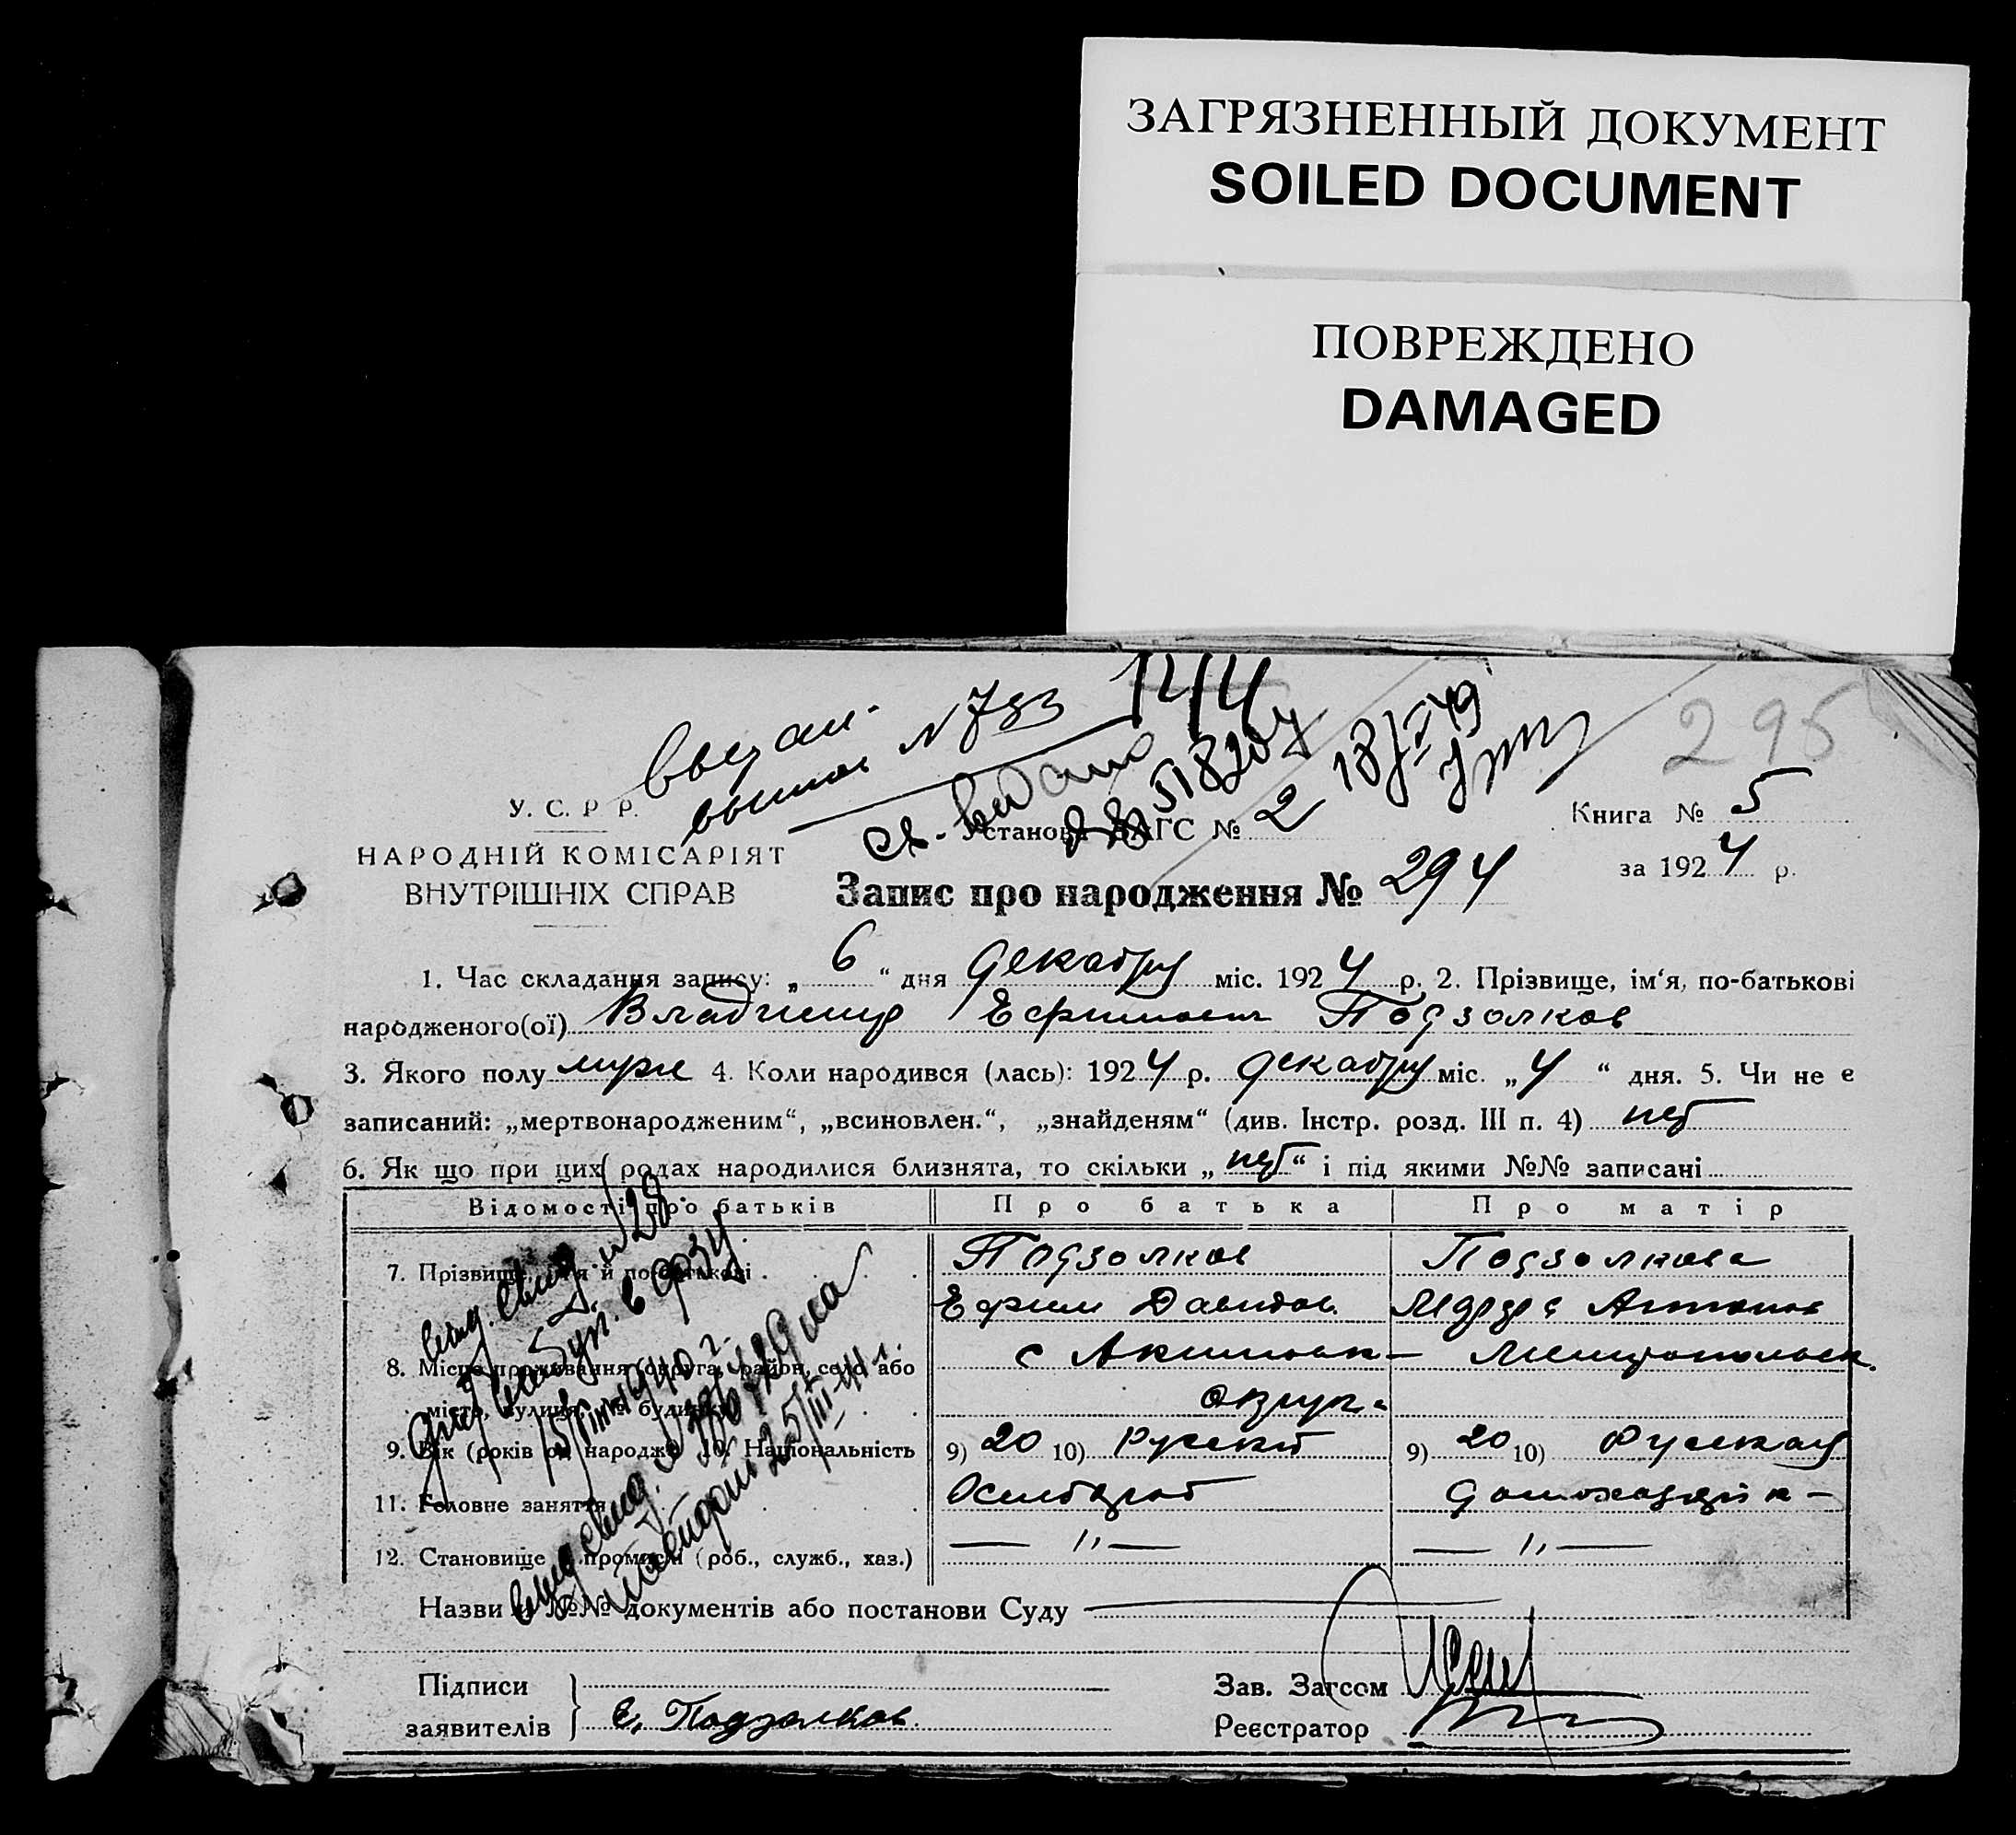 ЗАГРЯЗНЕННЫЙ ДОКУМЕНТ
SOILED DOCUMENT
ПОВРЕЖДЕНО
DAMAGED
295
144
N 783
св. видано
518207
18/II-49
У. С. Р Р.
НАРОДНІЙ КОМІСАРІЯТ
ВНУТРІШНІХ СПРАВ
Установа ЗАГС № 2
Книга № 5
за 1924 р.
Запис про народження № 294
1. Час складання запису: „6“ дня декабря міс. 1924 р. 2. Прізвище, ім‘я, по-батькові
народженого(ої) Владимир Ефимович Подзолков
3. Якого полу муж 4. Коли народився (лась): 1924 р. декабря міс. „4“ дня. 5. Чи не є
записаний: „мертвонародженим“, „всиновлен.“, „знайденям“ (див. Інстр. розд. III п. 4) нет
6. Як що при цих родах народилися близнята, то скільки „нет“ і під якими №№ записані
Відомості про батьків Про батька Про матір
7. Прізвище, ім‘я й по-батькові Подзолков Подзолкова
Ефим Давидов. Антонов
8. Місце проживання (округа, район, село або с Акимовк– Мелитопольск.
місто, вулиця, № будинку) округа
9. Вік (років од народж.) 10. Національність 9) 20 10) Русский 9) 20 10) Русская
11. Головне заняття домохозяйк–
12. Становище в промислі (роб., служб., хаз.) — „ — — „ —
Назви й №№ документів або постанови Суду
Підписи
заявителів Е. Подзолков
Зав. Загсом
Реєстратор